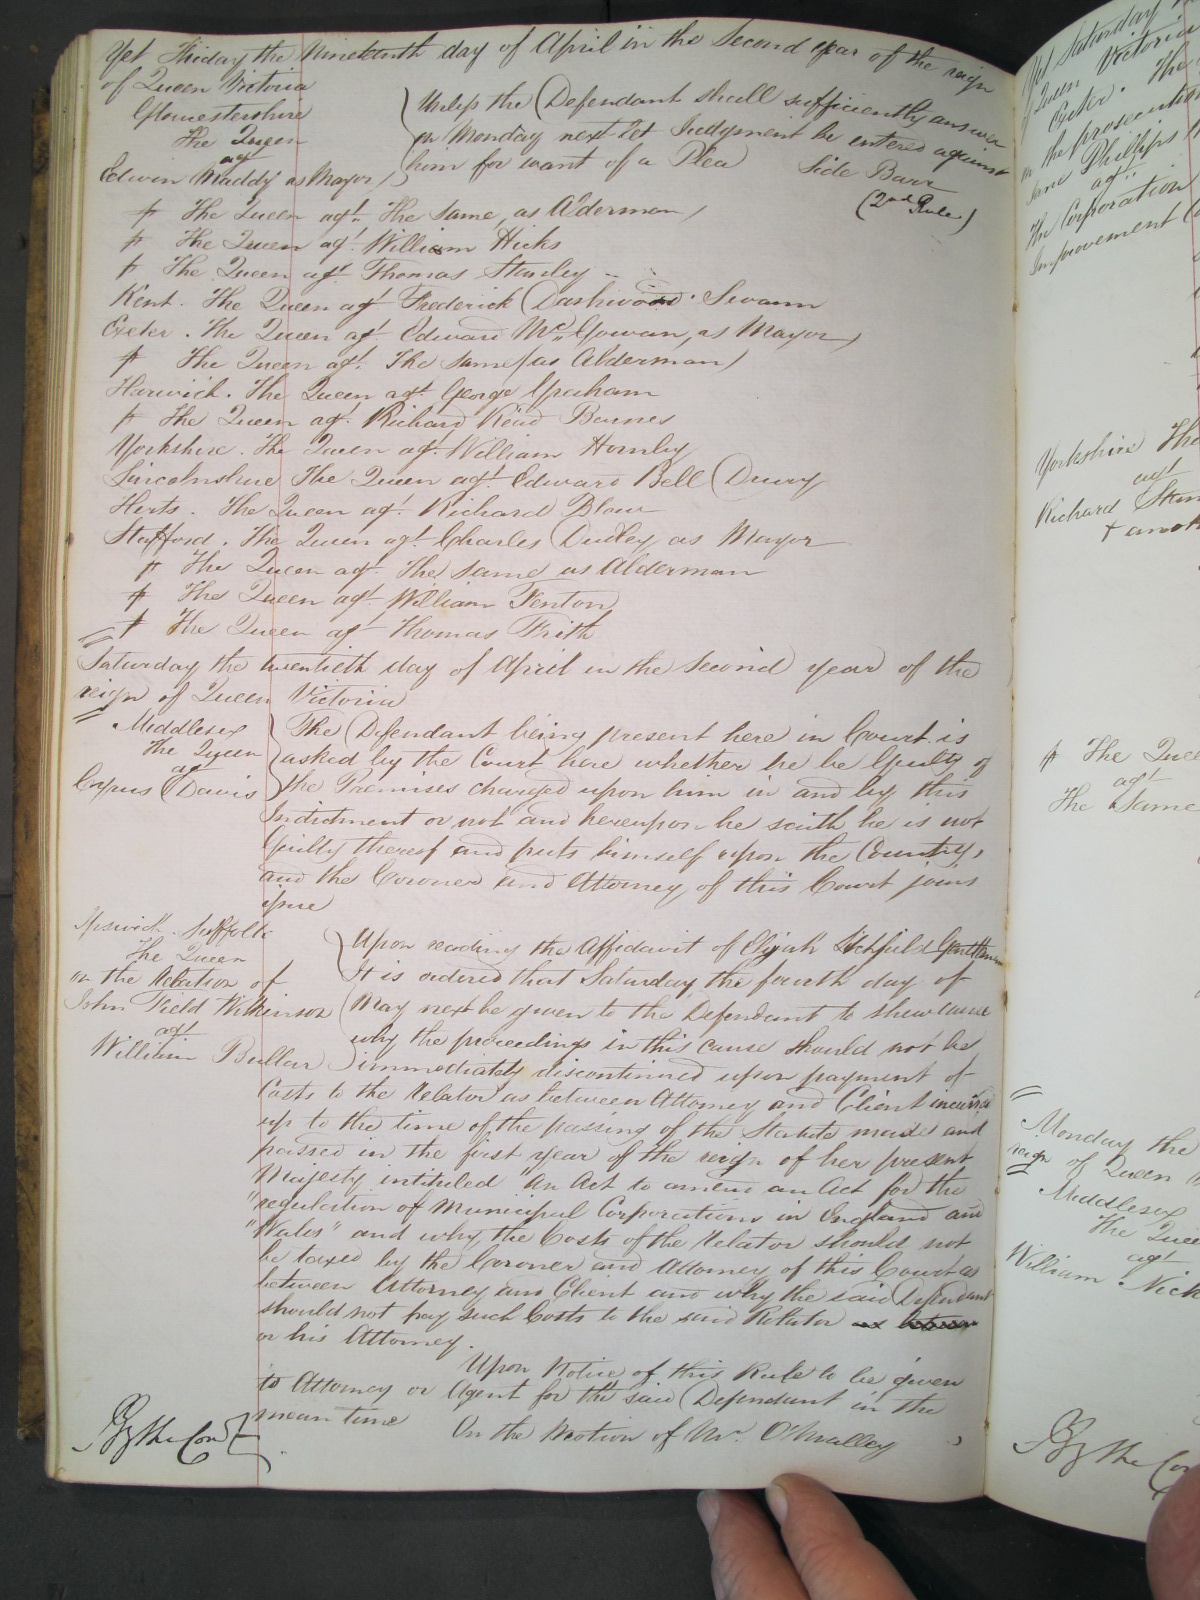 Yet Friday the Nineteenth day of April in the Second year of the reign
of Queen Victoria
Gloucestershire
The Queen
agt
Edwin Maddy as Mayor
Unless the Defendant shall sufficiently answer
on Monday next let Judgment be entered against
him for want of a Plea Side Barr
(2nd Rule)
The Queen agt. The same, as Alderman
The Queen agt. William Hicks
The Queen agt. Thomas Stanley
Kent. The Queen agt Frederick Dashwood Swann
Exeter. The Queen agt. Edward McGowan, as Mayor
The Queen agt. The same (as Alderman)
Harwich. The Queen agt. George Graham
The Queen agt. Richard Read Barnes
Yorkshire. The Queen agt. William Hornby
Lincolnshire The Queen agt. Edward Bell Drury
Herts. The Queen agt. Richard Blow
Stafford. The Queen agt. Charles Dudley as Mayor
The Queen agt. The same as Alderman
The Queen agt. William Fenton
The Queen agt Thomas Frith
Saturday the twentieth day of April in the Second year of the
reign of Queen Victoria
Middlesex
The Queen
agt
Davis
The Defendant being present here in Court is
asked by the Court here whether he be Guilty of
the Premises charged upon him in and by this
Indictment or not and hereupon he saith he is not
Guilty thereof and puts himself upon the Country,
and the Coroner and Attorney of this Court joins
issue
Ipswich. Suffolk
The Queen
on the Relation of
John Field Wilkinson
agt
William Bullar
Upon reading the Affidavit of Elijah Litchfield Gentleman
It is ordered that Saturday the fourth day of
May next be given to the Defendant to shew cause
why the proceedings in this cause should not be
immediately discontinued upon payment of
Costs to the Relator as between Attorney and Client incurred
up to the time of the passing of the Statute made and
passed in the first year of the reign of her present
Majesty intituled "An Act to amend an Act for the
"regulation of Municipal Corporations in England and
"Wales" and why the Costs of the Relator should not
be taxed by the Coroner and Attorney of this Court as
between Attorney and Client and why the said Defendant
should not pay such Costs to the said Relator
or his Attorney.
Upon Notice of this Rule to be given
to Attorney or Agent for the said Defendant in the
mean time
On the Motion of Mr. O'Malley
By the Court
Yet Saturday
Queen Victoria
Exeter. The
on the prosecution
Jane Phillips
agt.
The Corporation
Improvement
Yorkshire The
agt
Richard
+
The
agt
The Same
Monday the
reign of Queen
Middlesex
The
agt
William
By the